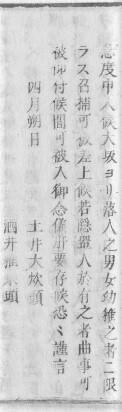 急度申入候大坂ヨリ落人之男女幼稚之者ニ限
ラス召捕可被差上候若隠置人於有之者曲事可
被仰付候間可被入御念儀肝要存候恐〻謹言
四月朔日
土井大炊頭
酒井雅楽頭